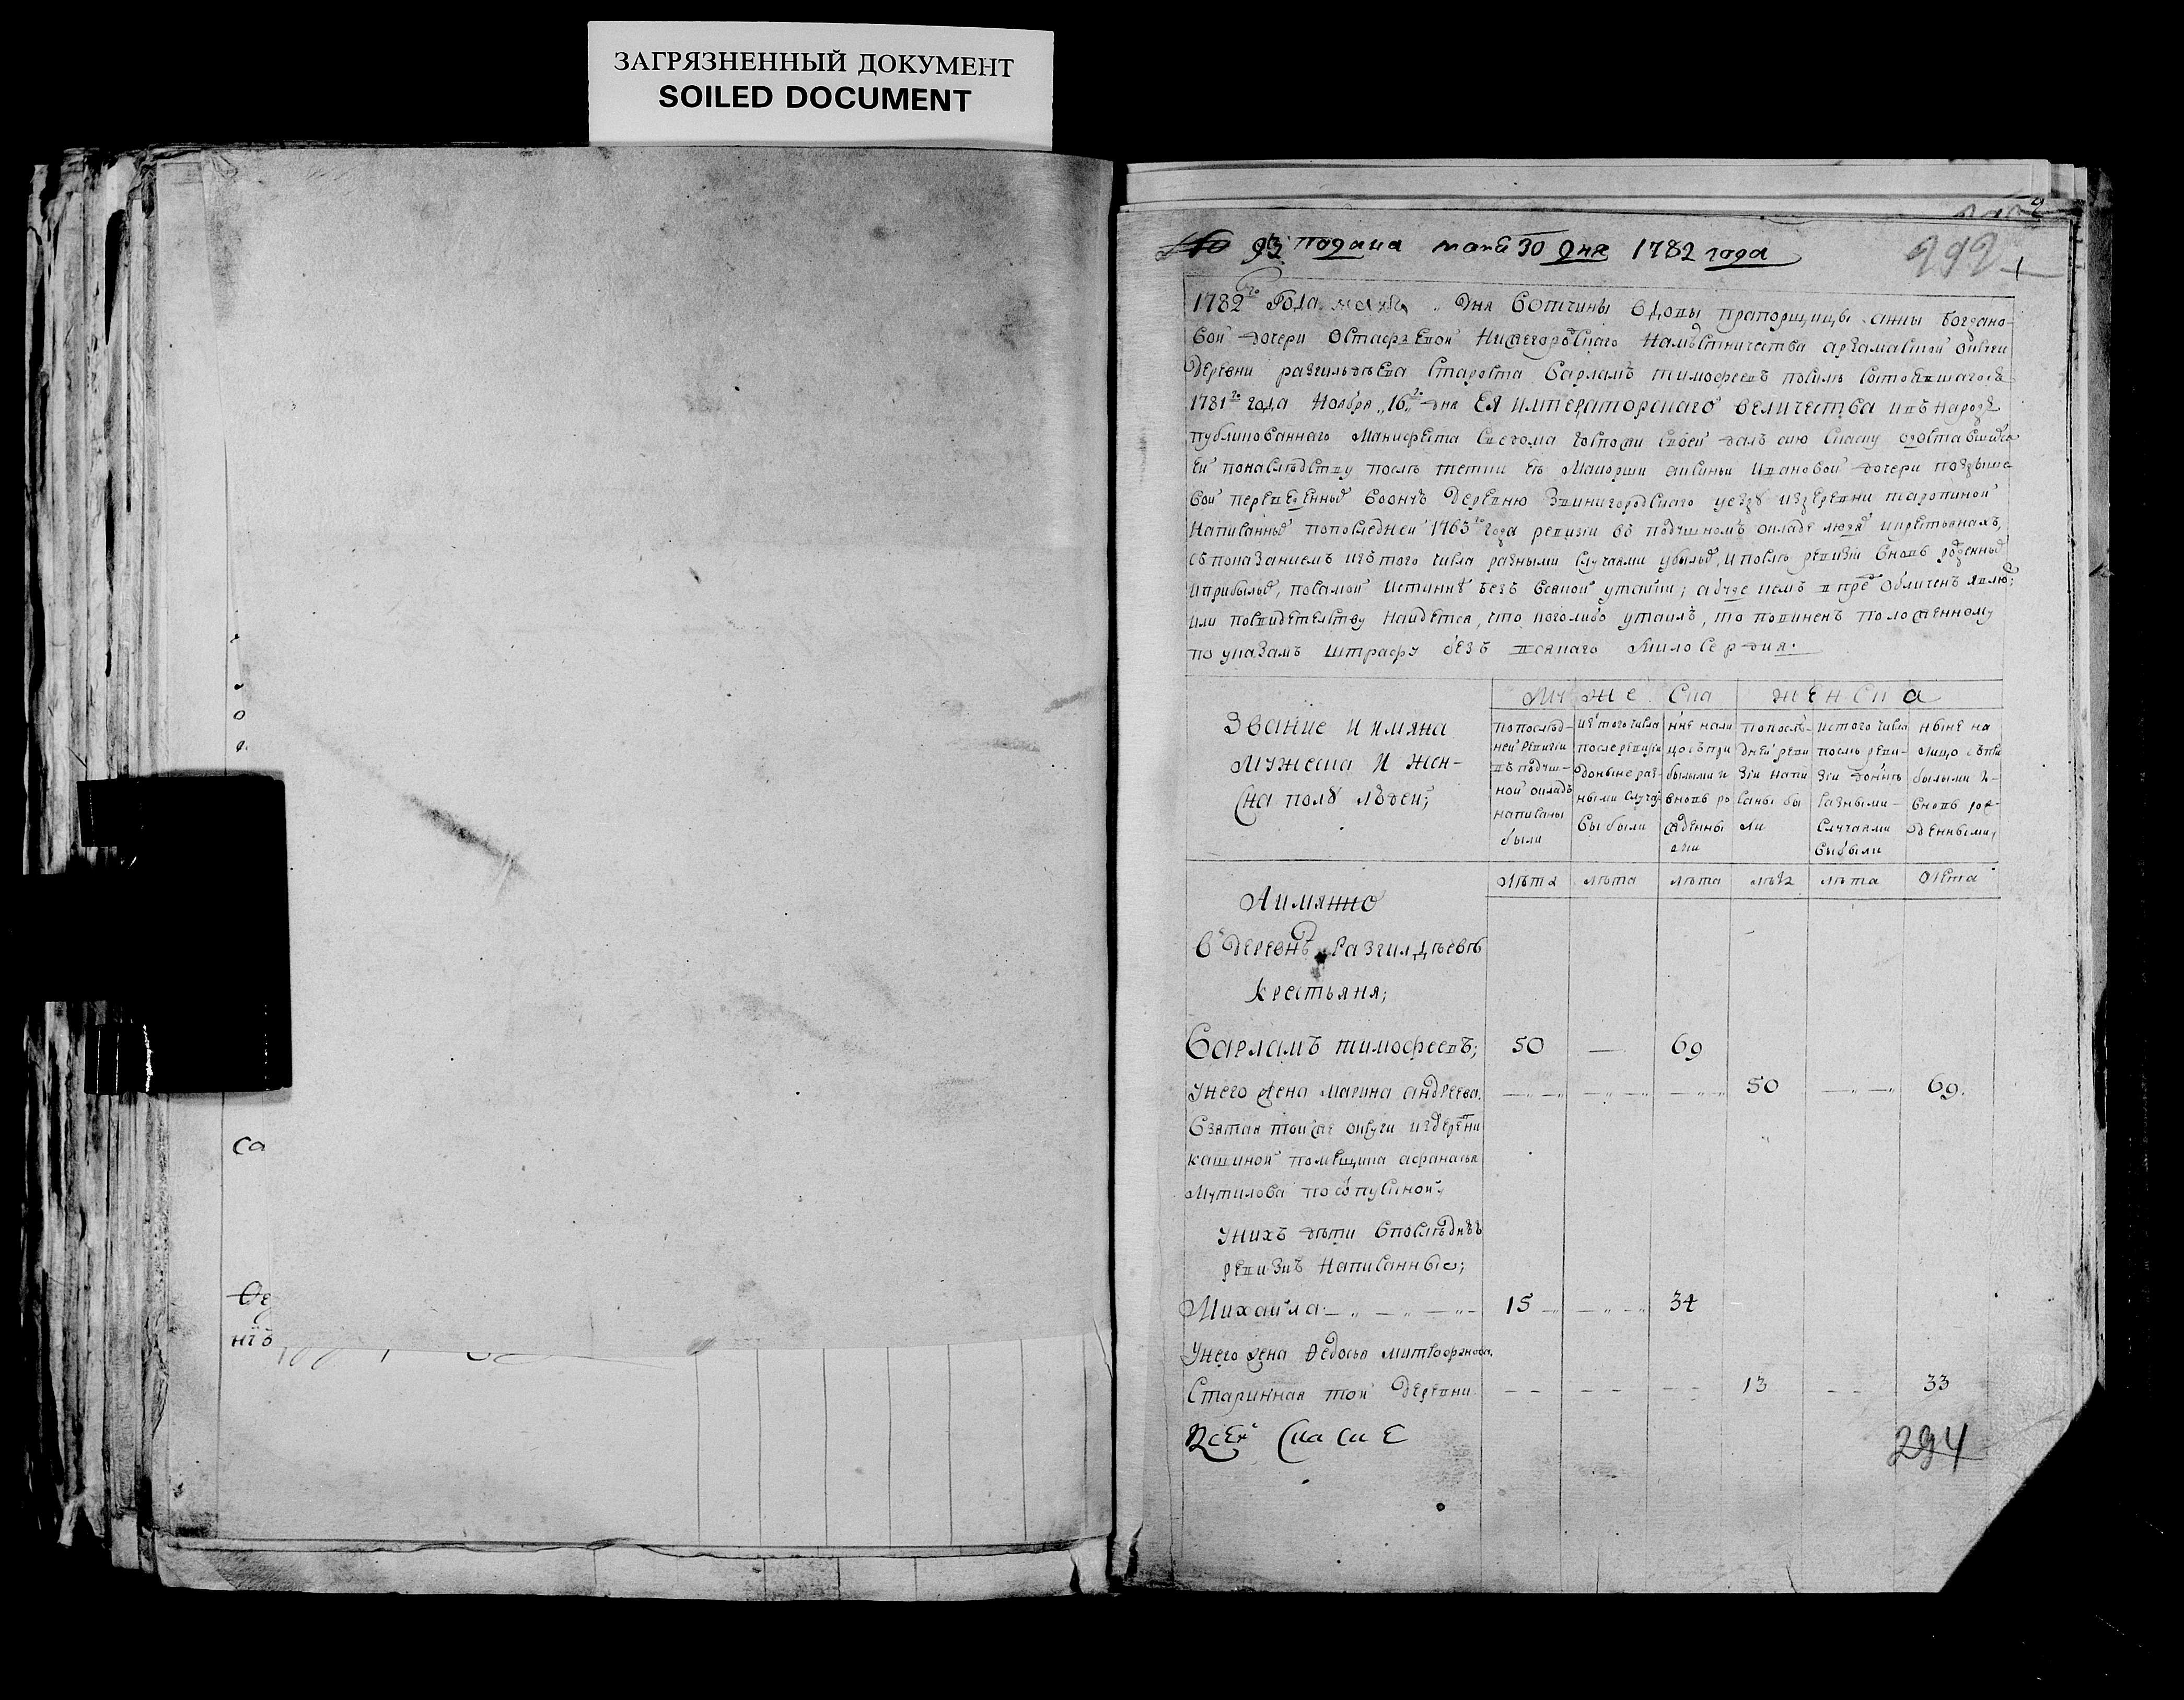 ЗАГРЯЗНЕННЫЙ ДОКУМЕНТ
SOILED DOCUMENT
са
нїо
№ 93 подана маиа 30 дня 1782 года
292
1
1782го Года маия „ дня Вотчины вдовы прапорщицы анны богдано-
вой дочери Остафьевой Нижегородскаго Намѣстничества арзамаской округи
деревни разгильдѣева староста Варламъ тимофеевъ посилѣ состоявшагося
1781го года Ноября „16го дня ЕЯ императорскаго величества ивъ народъ
публикованнаго Манифеста свѣдома госпожи своей далъ сию скаску одоставшихся
ей понаслѣдству послѣ тетки еѣ Маиорши аксиньи ивановой дочери
вой переведенныхъ воонуъ деревню Звинигородскаго уезда издеревни таропиной
Написанныхъ попоследней 1763го года ревизіи въ подушномъ окладе людяхъ икрестьянахъ,
съ показаниемъ изътого числа разными случаями убылыхъ, ипослѣ ревизіи вновь рожденныхъ
иприбылыхъ, посамой истиннѣ безъ всякой утайки; абуде кемъ впредь обличенъ явлюсь;
или посвидетельству наидется, что коголибо утаилъ, то повиненъ положенному
по указамъ штрафу безъ всякаго милосердия.
Звание и имяна
мужеска и жен-
ска полу людей;
Му же ска
женска
попослѣд-
ней ревизіи
въ подуш-
ной окладъ
написаны
были
изъ того числа
после ревизіи
доныне раз-
ными случаи
выбыли
ныне нали
цо съ при
былыми и
вновь ро
жденны
ми
попослѣ-
дней реви
зіи напи
саны бы
ли
истого числа
послѣ реви-
зіи донынѣ
разными-
случаями
выбыли
ныне на
лицо съ при
былыми и-
вновь рож-
денными,
лѣта лѣта лѣта лѣта лѣта лѣта
Аимянно
Въ деревнѣ Разгилдѣевѣ
крестьяня;
Варламъ тимофеевъ; 50 — 69
Унего жена марина андреева. 50 69.
Взятая тойже округи издеревни
кашиной помещика афанасья
Мутилова поотпускной;
Унихъ дѣти впослѣдней
ревизиѣ написанные;
Михаила 15 34
Унего жена Ѳедосья митрофанова.
Старинная той деревни 13 33
Ксей скаске
294